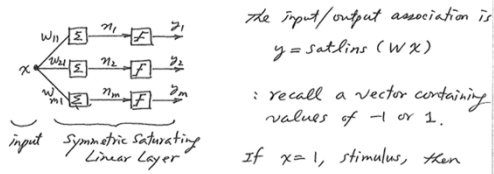 w11 Σ n1 f y1
x w21 Σ n2 f y2
wm1 Σ nm f ym
input Symmetric Saturating
Linear Layer
The input/output association is
y = satlins (Wx)
: recall a vector containing
values of -1 or 1.
If x=1, stimulus, then